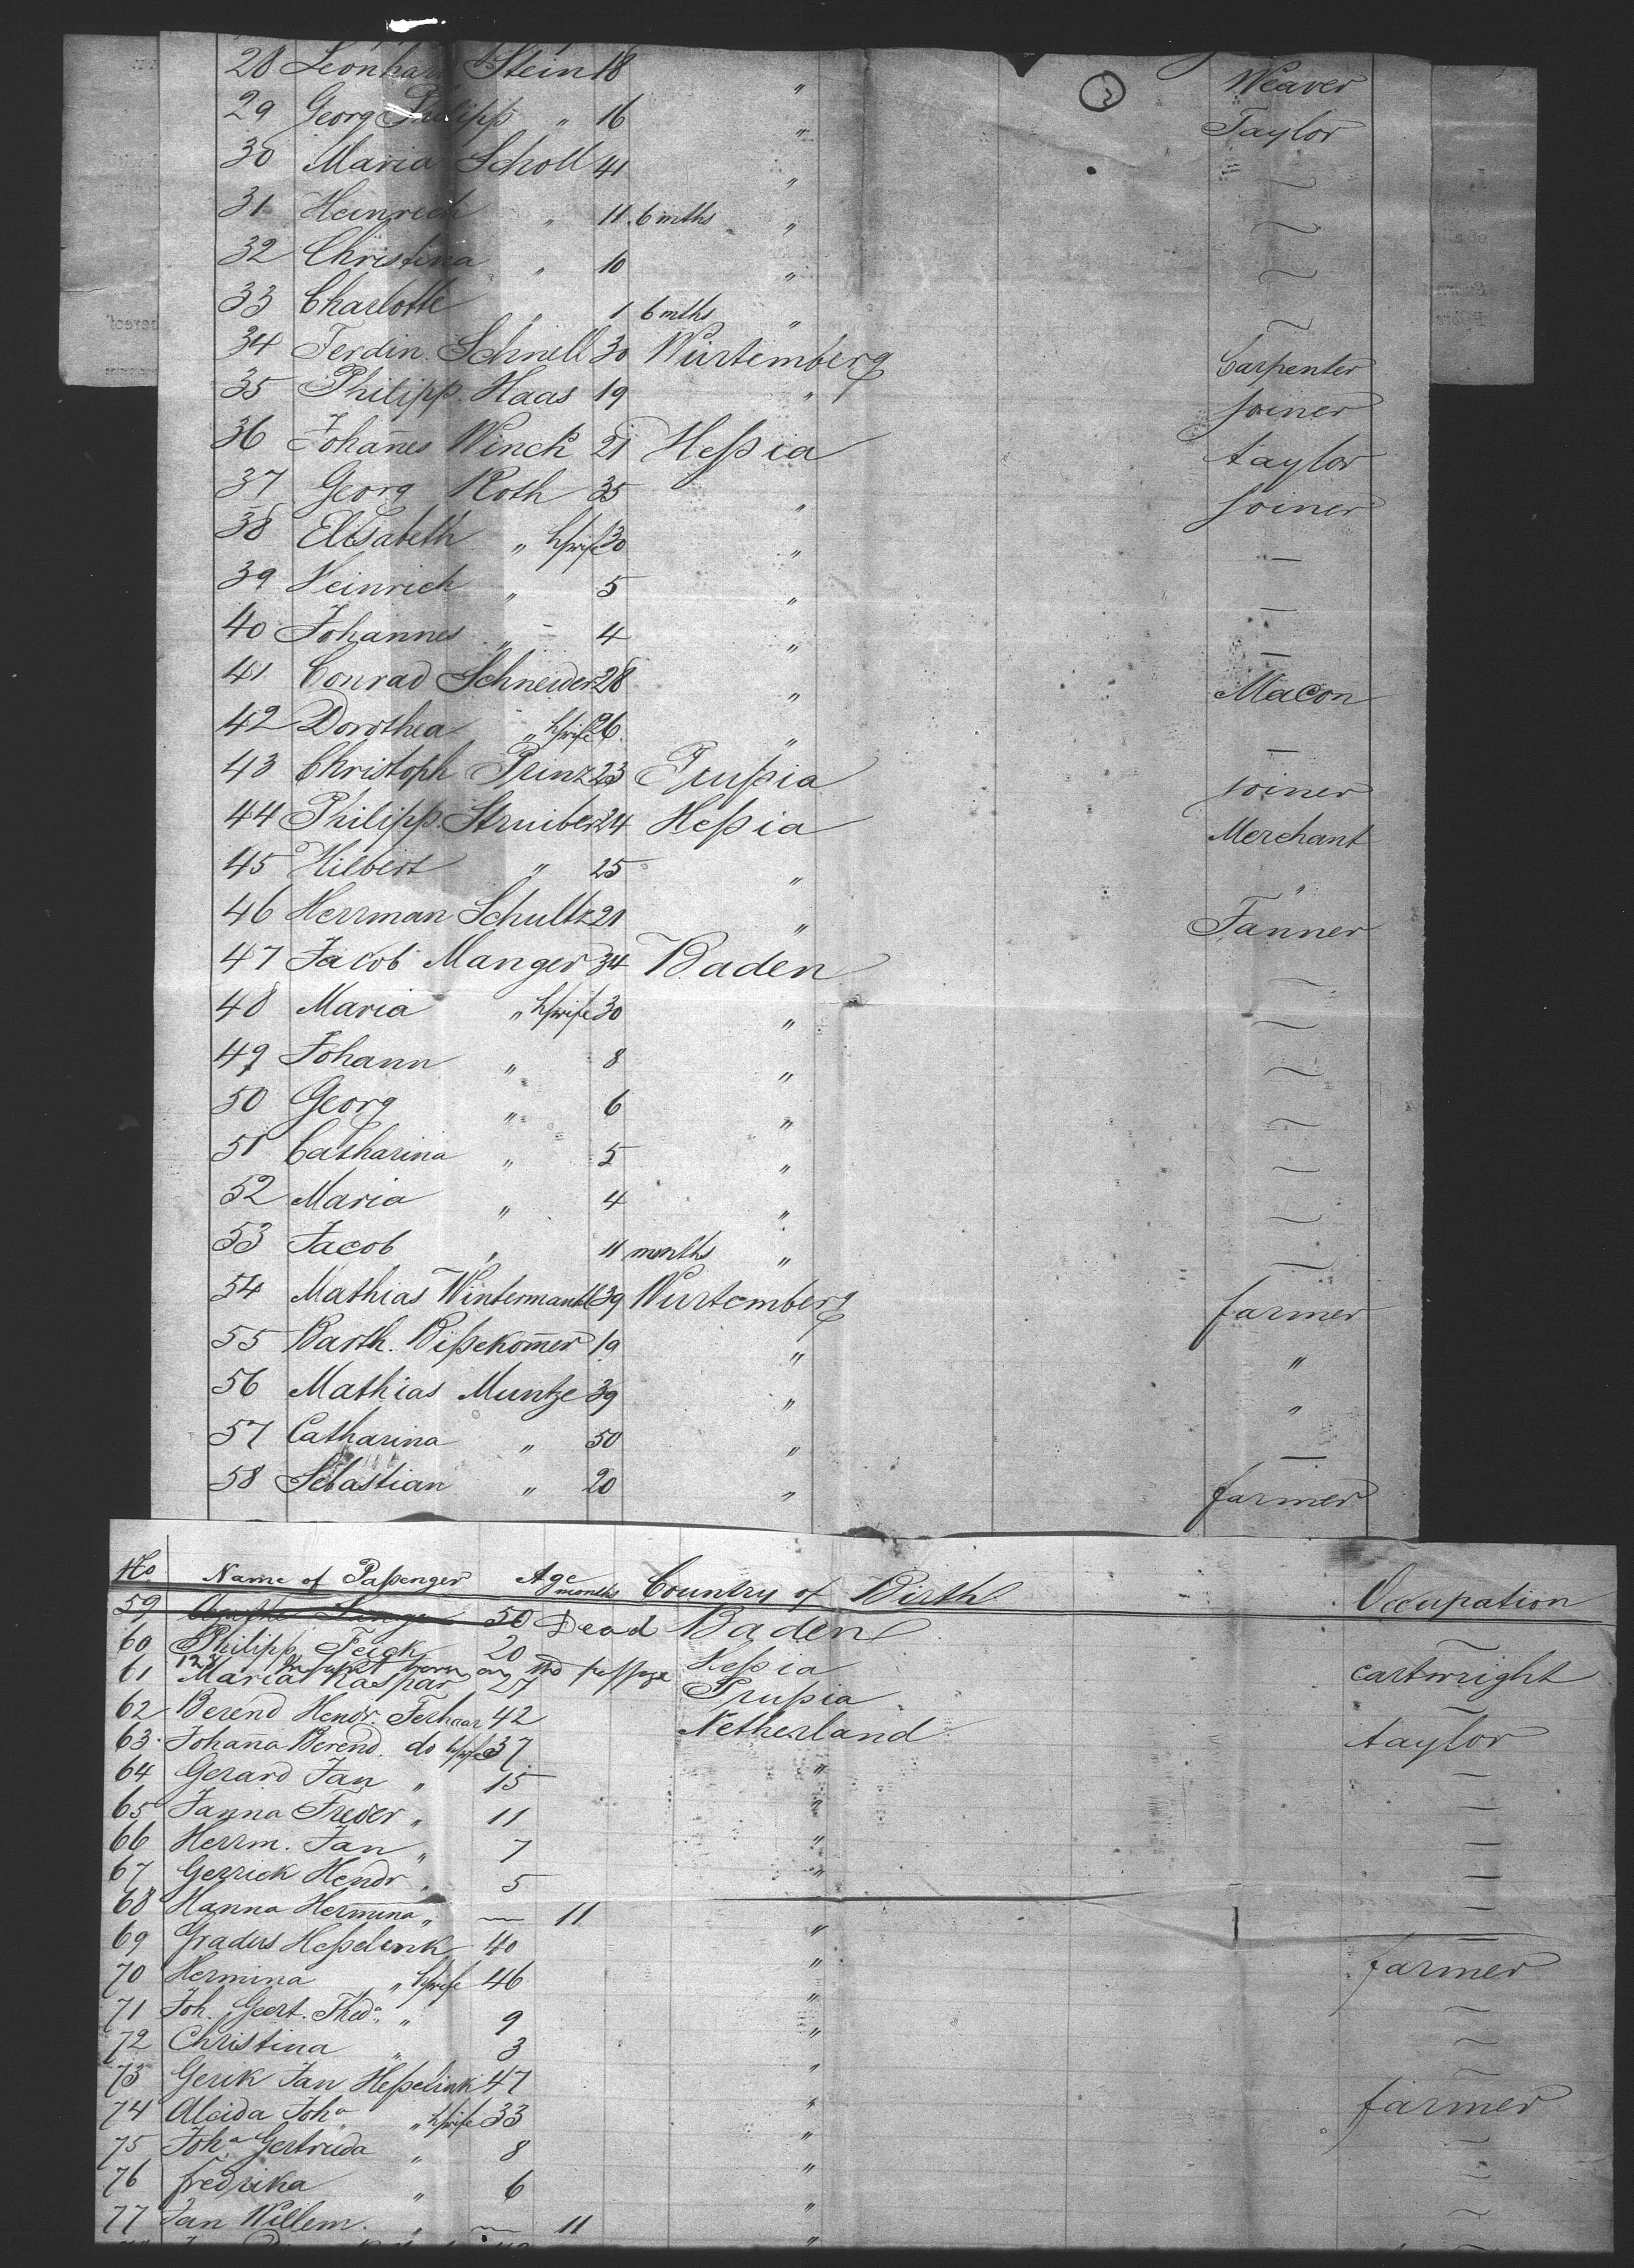 28 Leonhard Stein 18 " Weaver
29 Georg Philipp " 16 " Taylor
30 Maria Scholl 41 " ~
31 Heinrich " 11. 6 mths " ~
32 Christina " 10 " ~
33 Charlotte " 1 6 mths " ~
34 Ferdin. Schnell 30 Würtemberg Carpenter
35 Philipp Haas 19 " Joiner
36 Johan̄es Winck 21 Heßia taylor
37 Georg Roth 35 " Joiner
38 Elisabeth " h/wife 30 " —
39 Heinrich " 5 " —
40 Johannes " 4 " —
41 Conrad Schneider 28 " Macon
42 Dorothea " h/wife 26. " —
43 Christoph Prinz 23 Prußia Joiner
44 Philipp. Struiber 24 Heßia Merchant
45 Hilbert " 25 " "
46 Herrman Schultz 21 " Tanner
47 Jacob Manger 34 Baden ~
48 Maria " h/wife 30 " ~
49 Johann " 8 " ~
50 Georg " 6 " ~
51 Catharina " 5 " ~
52 Maria " 4 " ~
53 Jacob " 11 months " ~
54 Mathias Wintermantl 39 Würtemberg farmer
55 Barth. Bißekom̄er 19 " "
56 Mathias Muntze 39 " "
57 Catharina " 50 " —
58 Sebastian " 20 " farmer
No Name of Paßenger Age months Country of Birth Occupation
59 50 Dead Baden
60 Philipp Feick 20 Heßia cartwright
128 Infant born on the passage
61 Maria Kaspar 27 Prußia ~
62 Berend Hendr. Terhaar 42 Netherland taylor
63. Johan̄a Berend. do h/wife 37 " —
64 Gerard Jan " 15 " —
65 Janna Freder " 11 " —
66 Herrm. Jan " 7 " —
67 Gerrick Hendr " 5 " —
68 Hanna Hermina " — 11 " —
69 Gradus Heßelink 40 " farmer
70 Hermina " h/wife 46 " ~
71 Joh. Geert. Theda " 9 " ~
72 Christina " 3 " ~
73 Gerik Jan Heßelink 47 " farmer
74 Aleida Joha " h/wife 33 " ~
75 Joha Gertruda " 8 " ~
76 fredrika " 6 " ~
77 Jan Willem. " — 11 " ~